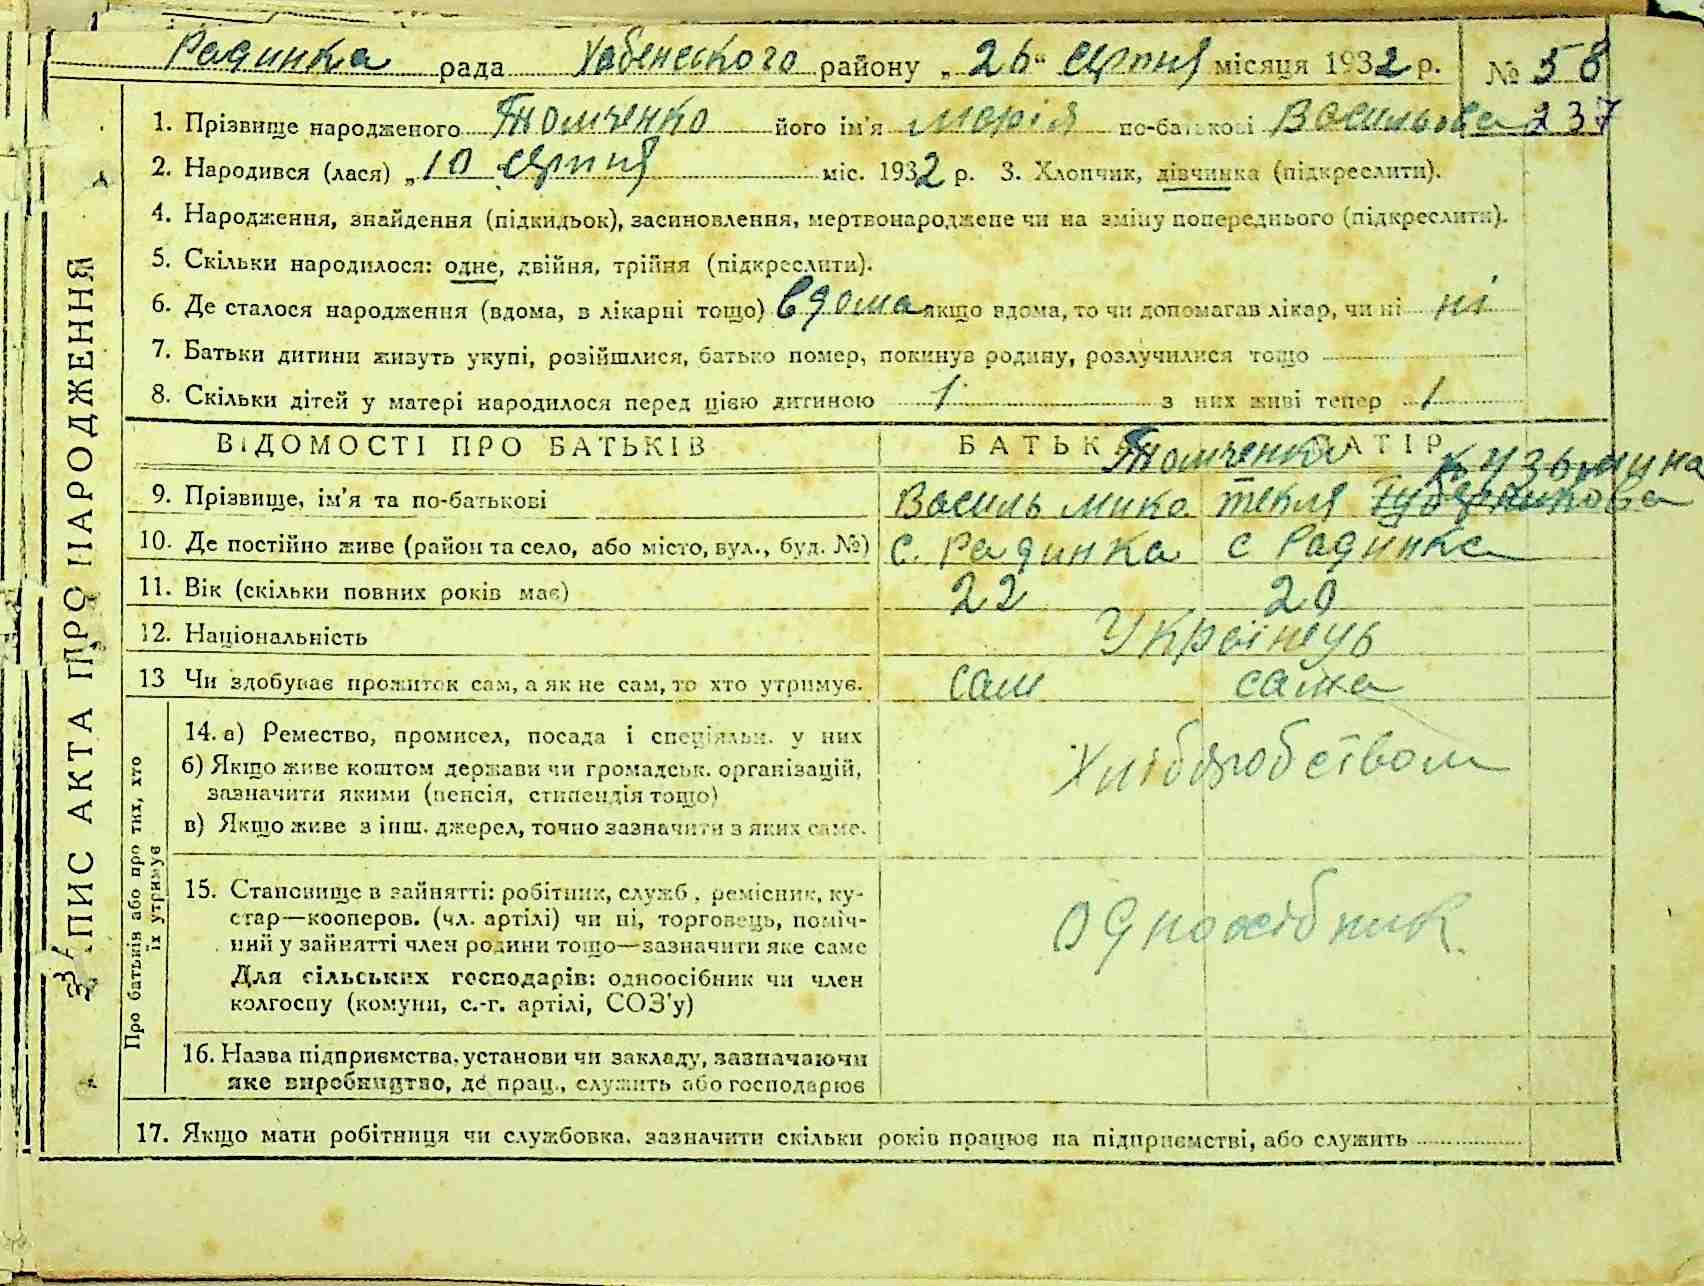 ЗАПИС АКТА ПРО НАРОДЖЕННЯ
Радинка рада Хабенського району „26“ серпня місяця 1932 р. № 58
1. Прізвище народженого Толмченко його ім'я Марія по-батькові Васильова 237
2. Народився (лася) „10 серпня міс. 1932 р. 3. Хлопчик, дівчинка (підкреслити).
4. Народження, знайдення (підкидьок), засиновлення, мертвонароджене чи на зміну попереднього (підкреслити).
5. Скільки народилося: одне, двійня, трійня (підкреслити).
6. Де сталося народження (вдома, в лікарні тощо) вдома якщо вдома, то чи допомагав лікар, чи ні ні
7. Батьки дитини живуть укупі, розійшлися, батько помер, покинув родину, розлучилися тощо
8. Скільки дітей у матері народилося перед цією дитиною 1 з них живі тепер 1
ВІДОМОСТІ ПРО БАТЬКІВ БАТЬКО МАТІР
Кузьмина
9. Прізвище, ім'я та по-батькові Василь Мико Текля
10. Де постійно живе (район та село, або місто, вул., буд. №) с. Радинка с Радинка
11. Вік (скільки повних років має) 22 20
12. Національність Українець
13 Чи здобуває прожиток сам, а як не сам, то хто утримує. сам сама
Про батьків або про тих, хто їх утримує
14. а) Ремество, промисел, посада і спеціяльн. у них
б) Якщо живе коштом держави чи громадськ. організацій,
зазначити якими (пенсія, стипендія тощо)
Хліборобством
в) Якщо живе з інш. джерел, точно зазначити з яких саме.
15. Становище в зайнятті: робітник, служб., ремісник, ку-
стар—кооперов. (чл. артілі) чи ні, торговець, поміч-
ний у зайнятті член родини тощо—зазначити яке саме
Для сільських господарів: одноосібник чи член
колгоспу (комуни, с.-г. артілі, СОЗ'у)
Одноосібник
16. Назва підприємства, установи чи закладу, зазначаючи
яке виробництво, де прац., служить або господарює
17. Якщо мати робітниця чи службовка, зазначити скільки років працює на підприємстві, або служить